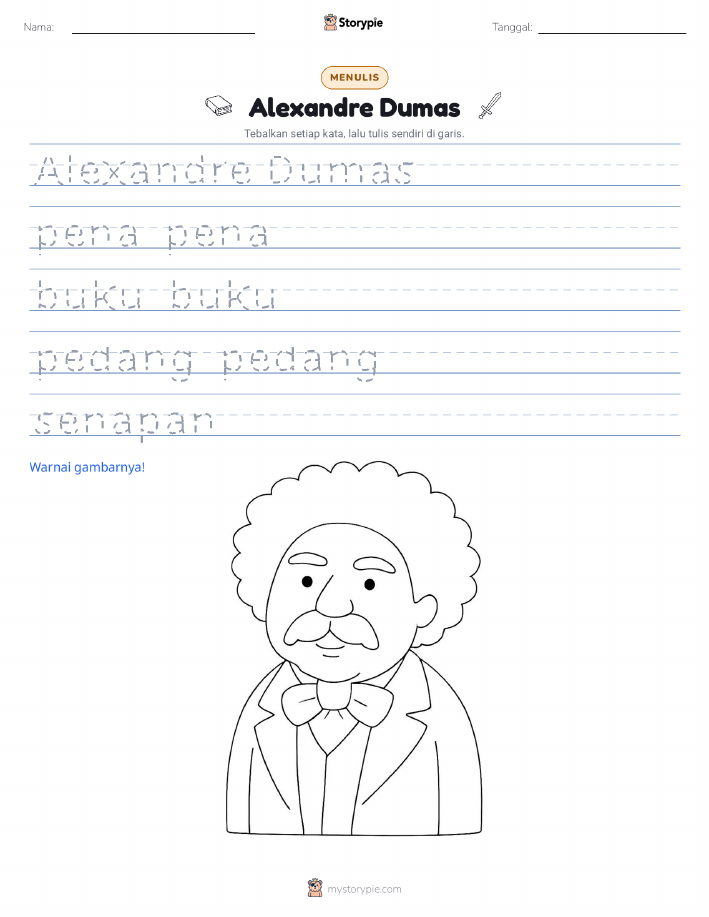 Nama: Storypie Tanggal:
MENULIS
Alexandre Dumas
Tebalkan setiap kata, lalu tulis sendiri di garis.
Alexandre Dumas
pena pena
buku buku
pedang pedang
senapan
Warnai gambarnya!
mystorypie.com